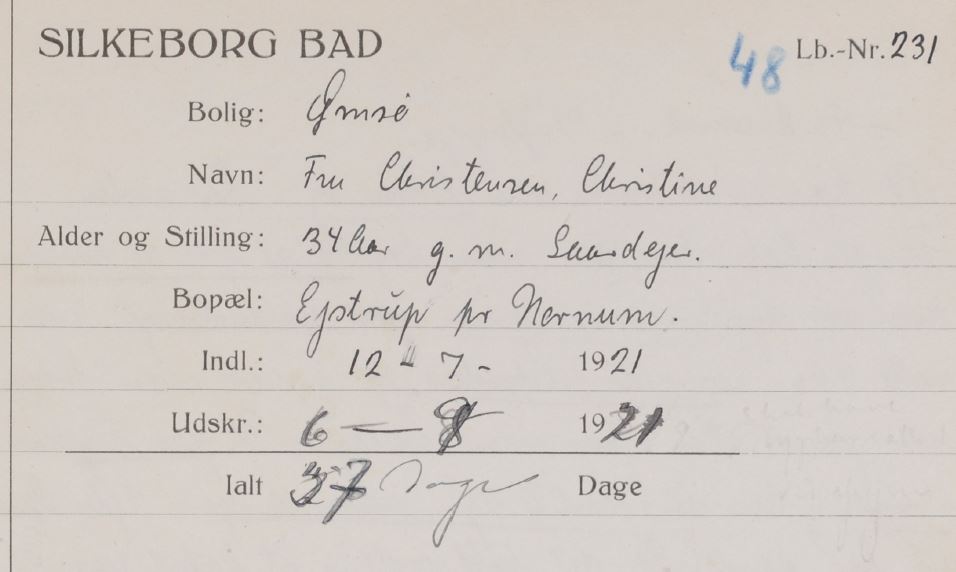 SILKEBORG BAD 48 Lb.-Nr. 231
Bolig: Ømsö
Navn: Fru Christensen, Christine
Alder og Stilling: 34 Aar g. m. Gaardejer.
Bopæl: Ejstrup pr Nornum.
Indl.: 12 - 7 - 1921
Udskr.: 6 — 8 1921
Ialt 37 Dage Dage